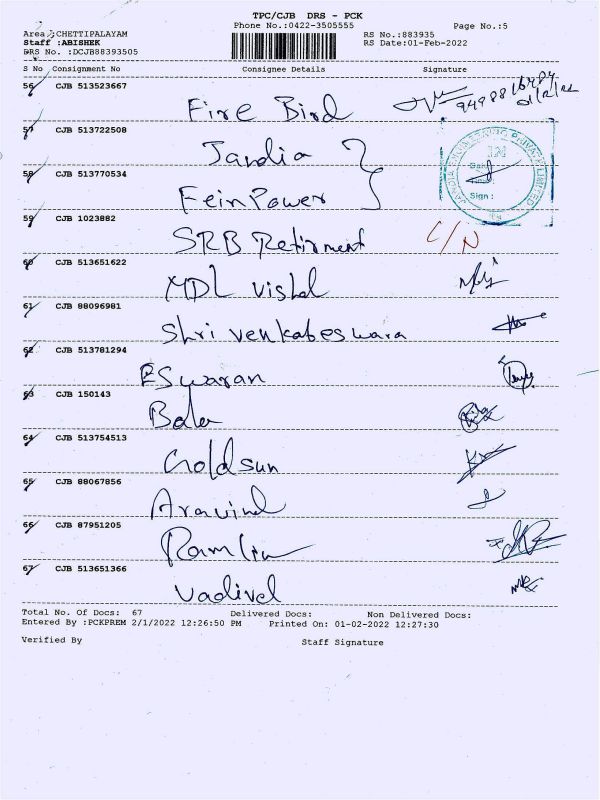 TPC/CJB DRS - PCK
Phone No.:0422-3505555 Page No.:5
Area :CHETTIPALAYAM RS No.:883935
Staff :ABISHEK RS Date:01-Feb-2022
DRS No. :DCJB88393505
S No Consignment No Consignee Details Signature
56 CJB 513523667
Fire Bird
57 CJB 513722508
Jandia
58 CJB 513770534
Fein Power
59 CJB 1023882
SRB Retirment C/N
60 CJB 513651622
MDL vishal
61 CJB 88096981
Shri venkateswara
62 CJB 513781294
ESwaran
63 CJB 150143
Bala
64 CJB 513754513
Goldsun
65 CJB 88067856
Aravind
66 CJB 87951205
67 CJB 513651366
Vadivel
Total No. Of Docs: 67 Delivered Docs: Non Delivered Docs:
Entered By :PCKPREM 2/1/2022 12:26:50 PM Printed On: 01-02-2022 12:27:30
Verified By Staff Signature